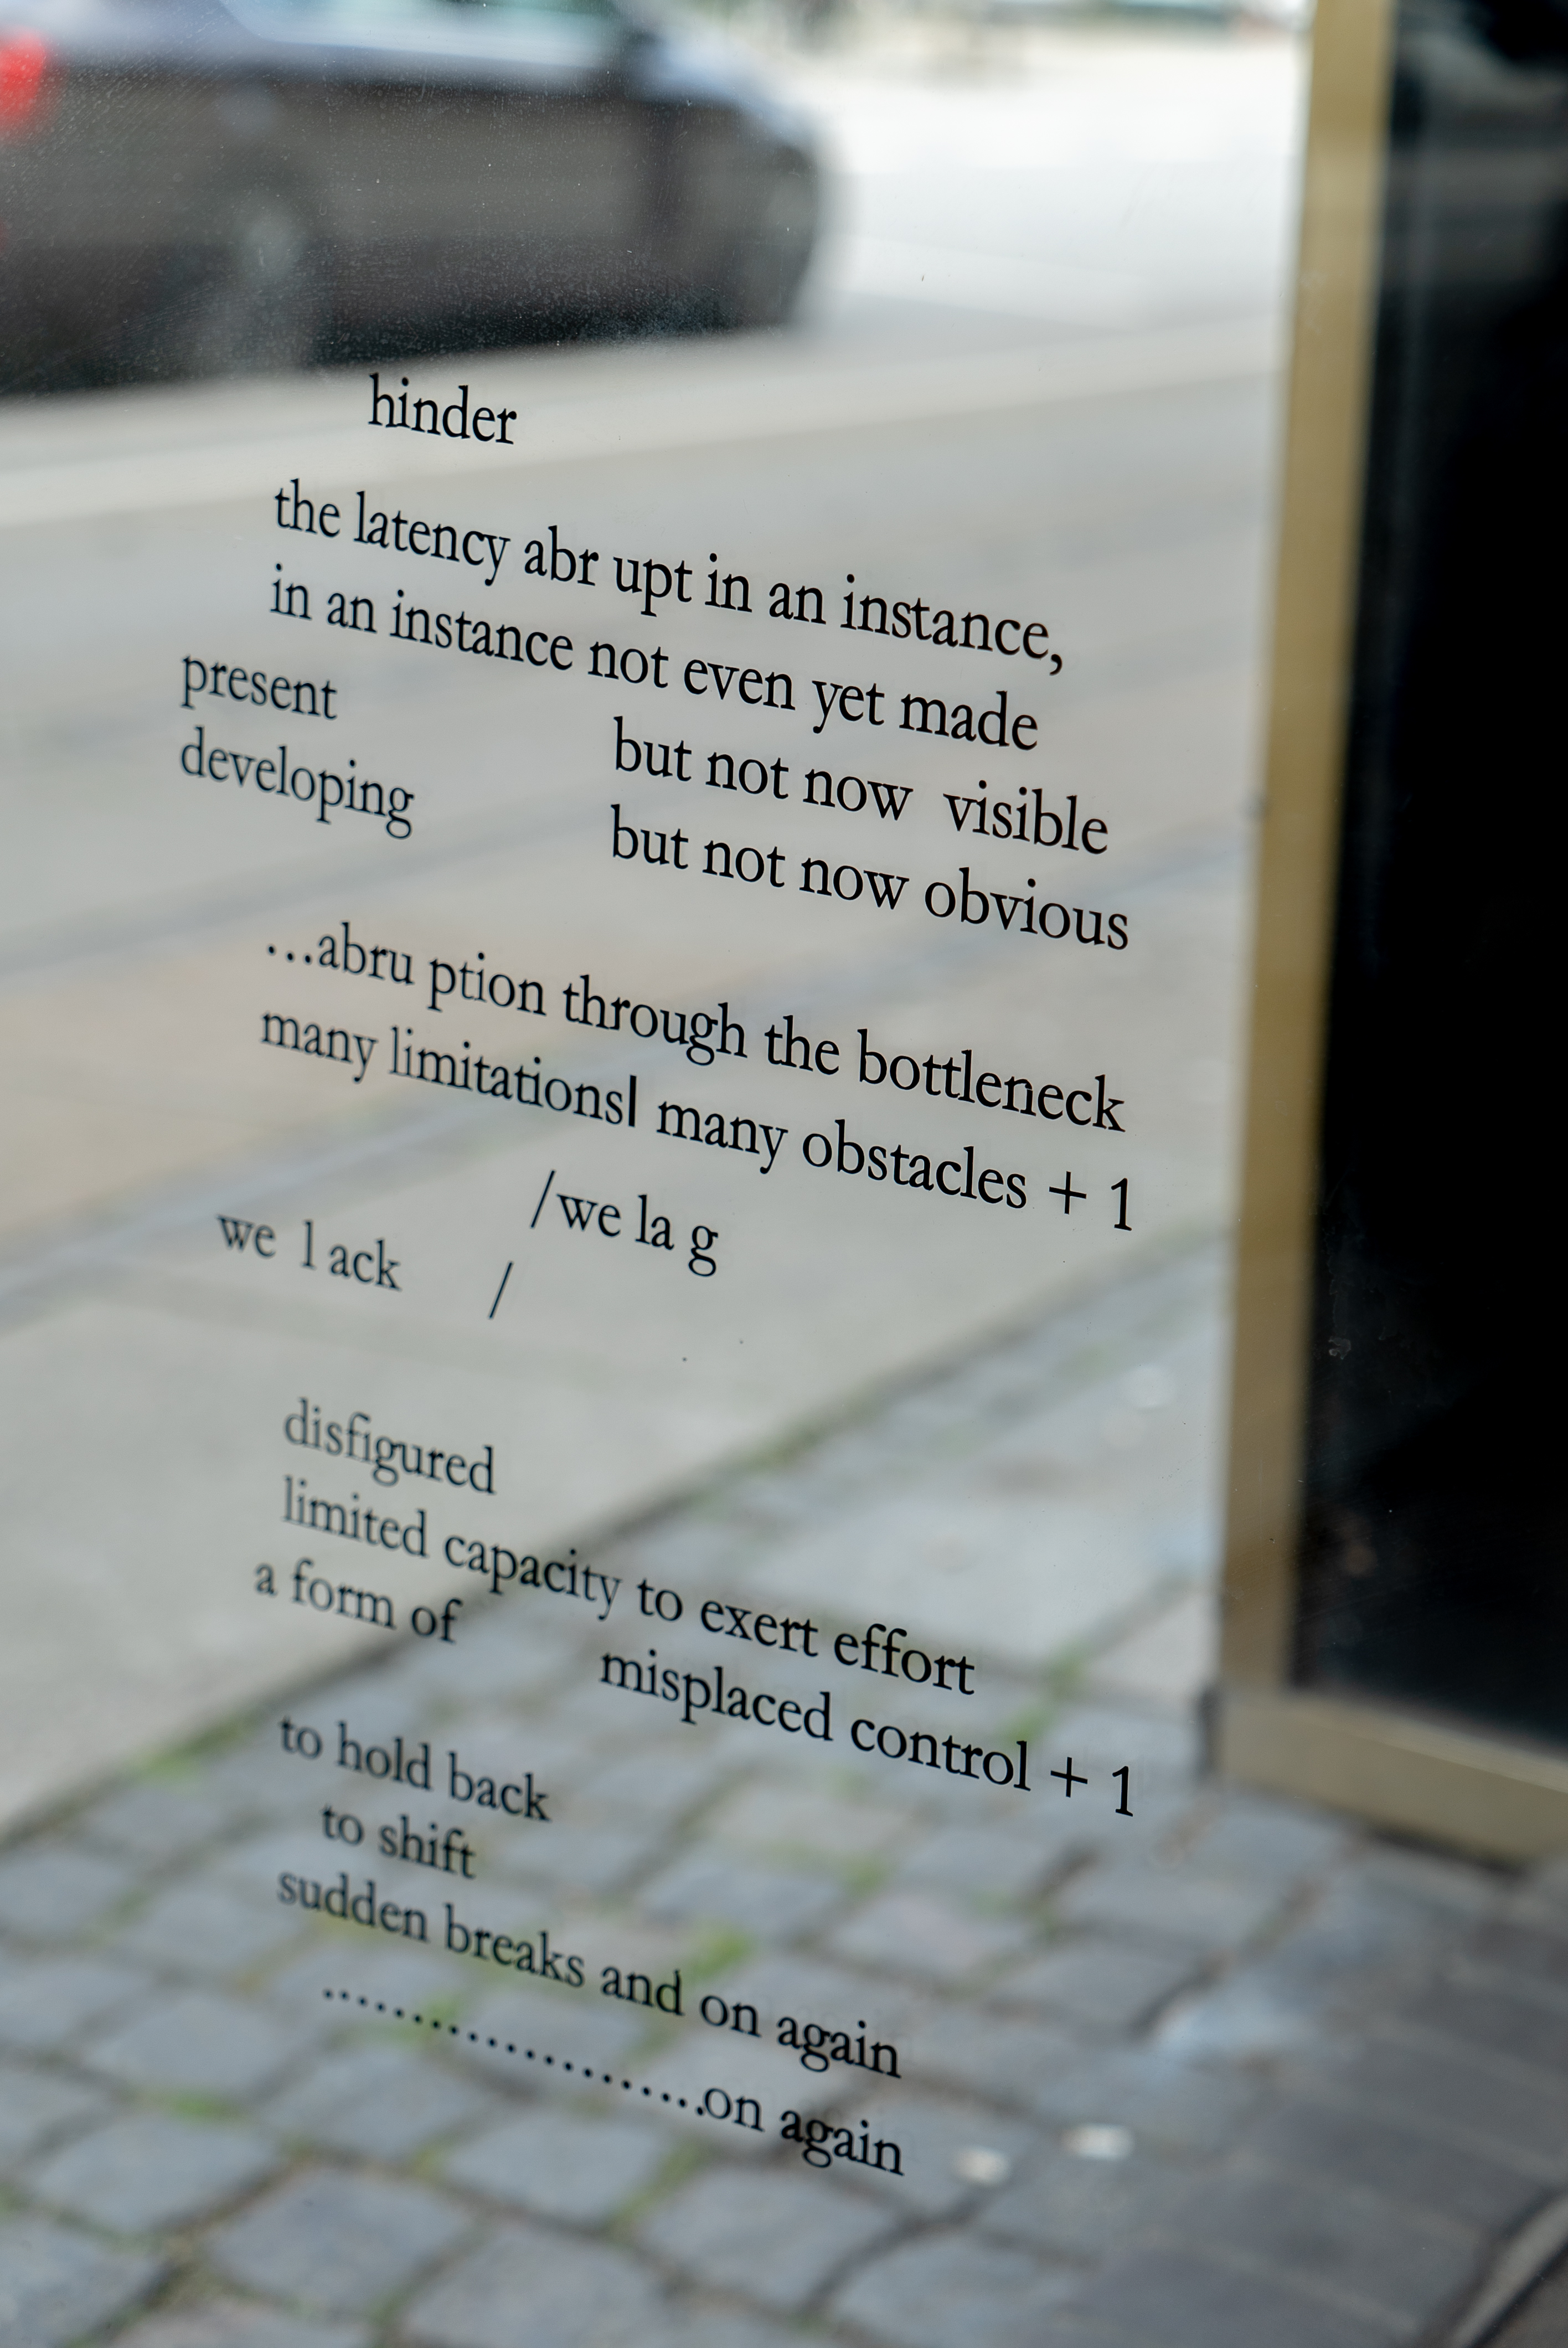 hinder
the latency abr upt in an instance,
in an instance not even yet made
present but not now visible
developing but not now obvious
...abru ption through the bottleneck
many limitations| many obstacles + 1
/we la g
we l ack /
disfigured
limited capacity to exert effort
a form of misplaced control + 1
to hold back
to shift
sudden breaks and on again
....................on again